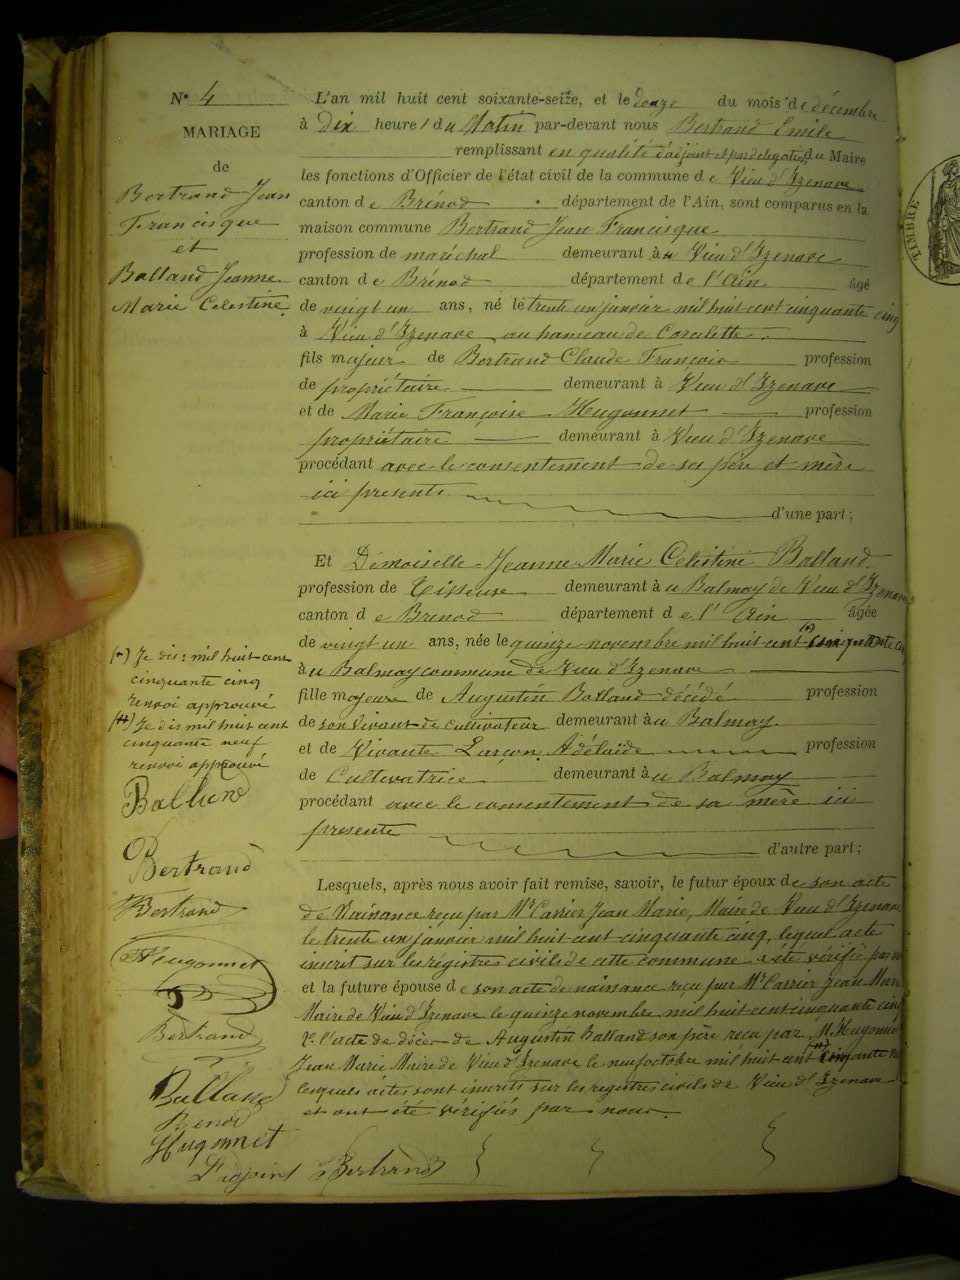 N° 4
MARIAGE
de
Bertrand Jean
Francisque
et
Balland Jeanne
Marie Celestine
L'an mil huit cent soixante-seize, et le douze du mois de décembre
à Dix heures du Matin par-devant nous Bertrand Emile
remplissant en qualité d'adjoint et par délégation du Maire
les fonctions d'Officier de l'état civil de la commune de Vieu d'Izenave
canton de Brénod département de l'Ain, sont comparus en la
maison commune Bertrand Jean Francisque
profession de maréchal demeurant à Vieu d'Izenave
canton de Brénod département de l'Ain âgé
de vingt un ans, né le trente un janvier mil huit cent cinquante cinq
à Vieu d'Izenave au hameau de
fils majeur de Bertrand Claude François profession
de propriétaire demeurant à Vieu d'Izenave
et de Marie Françoise Hugonnet profession
propriétaire demeurant à Vieu d'Izenave
procédant avec le consentement de ses père et mère
ici presents
d'une part;
Et Demoiselle Jeanne Marie Celestine Balland
profession de Tisseuse demeurant au Balmay de Vieu d'Izenave
canton de Brenod département de l'Ain âgée
de vingt un ans, née le quinze novembre mil huit cent (+) cinquante cinq
au Balmay commune de Vieu d'Izenave
fille majeure de Augustin Balland décédé profession
de son vivant de cultivateur demeurant au Balmay
et de Vivante Luçon Adélaïde profession
de Cultivatrice demeurant au Balmay
procédant avec le consentement de sa mère ici
presente
d'autre part;
Lesquels, après nous avoir fait remise, savoir, le futur époux de son acte
de Naissance reçu par Mr Carrier Jean Marie, Maire de Vieu d'Izenave
le trente un janvier mil huit cent cinquante cinq, lequel acte
inscrit sur les régistres civils de cette commune a été vérifié par
et la future épouse de son acte de naissance reçu par Mr Carrier Jean Marie
Maire de Vieu d'Izenave le quinze novembre mil huit cent cinquante cinq
2° l'acte de décès de Augustin Balland son père reçu par M. Hugonnet
Jean Marie Maire de Vieu d'Izenave le neuf octobre mil huit cent (++) cinquante
lesquels actes sont inscrits sur les registres civils de Vieu d'Izenave
et ont été vérifiés par nous.
(+) Je dis: mil huit cent
cinquante cinq
renvoi approuvé
(++) Je dis mil huit cent
cinquante neuf
renvoi approuvé
Balland
Bertrand
Bertrand
Hugonnet
Bertrand
Balland
Hugonnet
L'adjoint Bertrand
TIMBRE